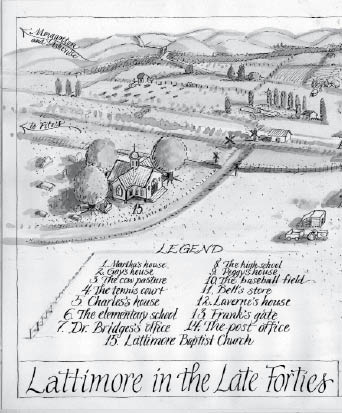 to Morganton
and
to Fitzes
15
LEGEND
1. Martha's house
2. Gay's house
3. The cow pasture
4. The tennis court
5. Charles's house
6. The elementary school
7. Dr. Bridges's office
8. The high school
9. Peggy's house
10. The baseball field
11. Bell's store
12. Laverne's house
13. Frank's gate
14. The post office
15. Lattimore Baptist Church
Lattimore in the Late Forties